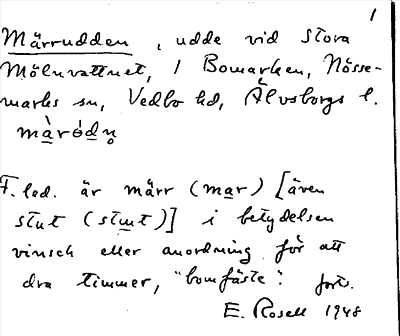 1
Märrudden, udde vid Stora
Mölnvattnet, i Bomarken, Nösse-
marks sn, Vedbo hd, Älvsborgs l.
màródn̥
F. led. är märr (mar) [även
stut (stut)] i betydelsen
vinsch eller anordning för att
dra timmer, "bomfäste". forts.
E. Rosell 1948